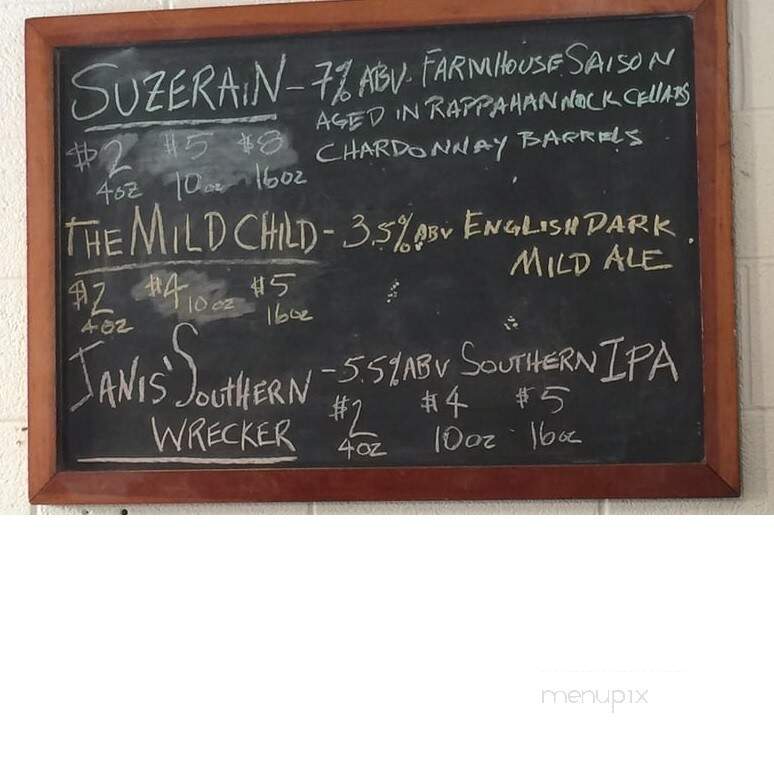 SUZERAIN - 7% ABV FARMHOUSE SAISON
AGED IN RAPPAHANNOCK CELLARS
CHARDONNAY BARRELS
$2 $5 $8
4oz 10oz 16oz
THE MILD CHILD - 3.5% ABV ENGLISH DARK
MILD ALE
$2 $4 $5
4oz 10oz 16oz
JANIS' SOUTHERN - 5.5% ABV SOUTHERN IPA
WRECKER
$2 $4 $5
4oz 10oz 16oz
menupix